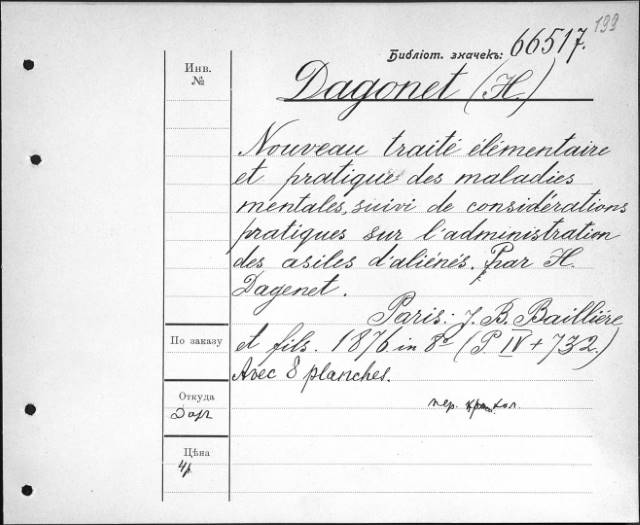 199
Библіот. значекъ: 66517.
Инв.
№
Dagonet (H.)
Nouveau traité élémentaire
et pratique des maladies
mentales, suivi de considérations
pratiques sur l'administration
des asiles d'aliénés. Par H.
Dagenet.
Paris: J. B. Baillière
По заказу
et fils. 1876. in 8º (P. IV + 732.)
Avec 8 planches.
Откуда
Дар
пер.
Цѣна
4р